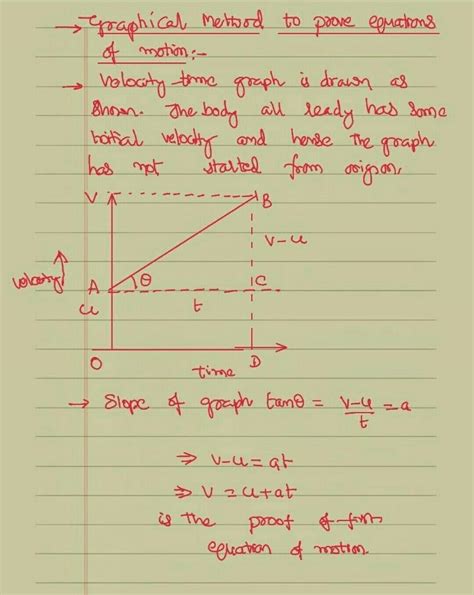 → Graphical Method to prove equations
of motion:-
→ Velocity-time graph is drawn as
shown. The body all ready has some
initial velocity and hense the graph
has not started from origion.
V
B
v-u
velocity
A
θ
C
u
t
O
time
D
→ Slope of graph tanθ = v-u/t = a
⇒ v-u = at
⇒ v = u+at
is the proof of first
equation of motion.